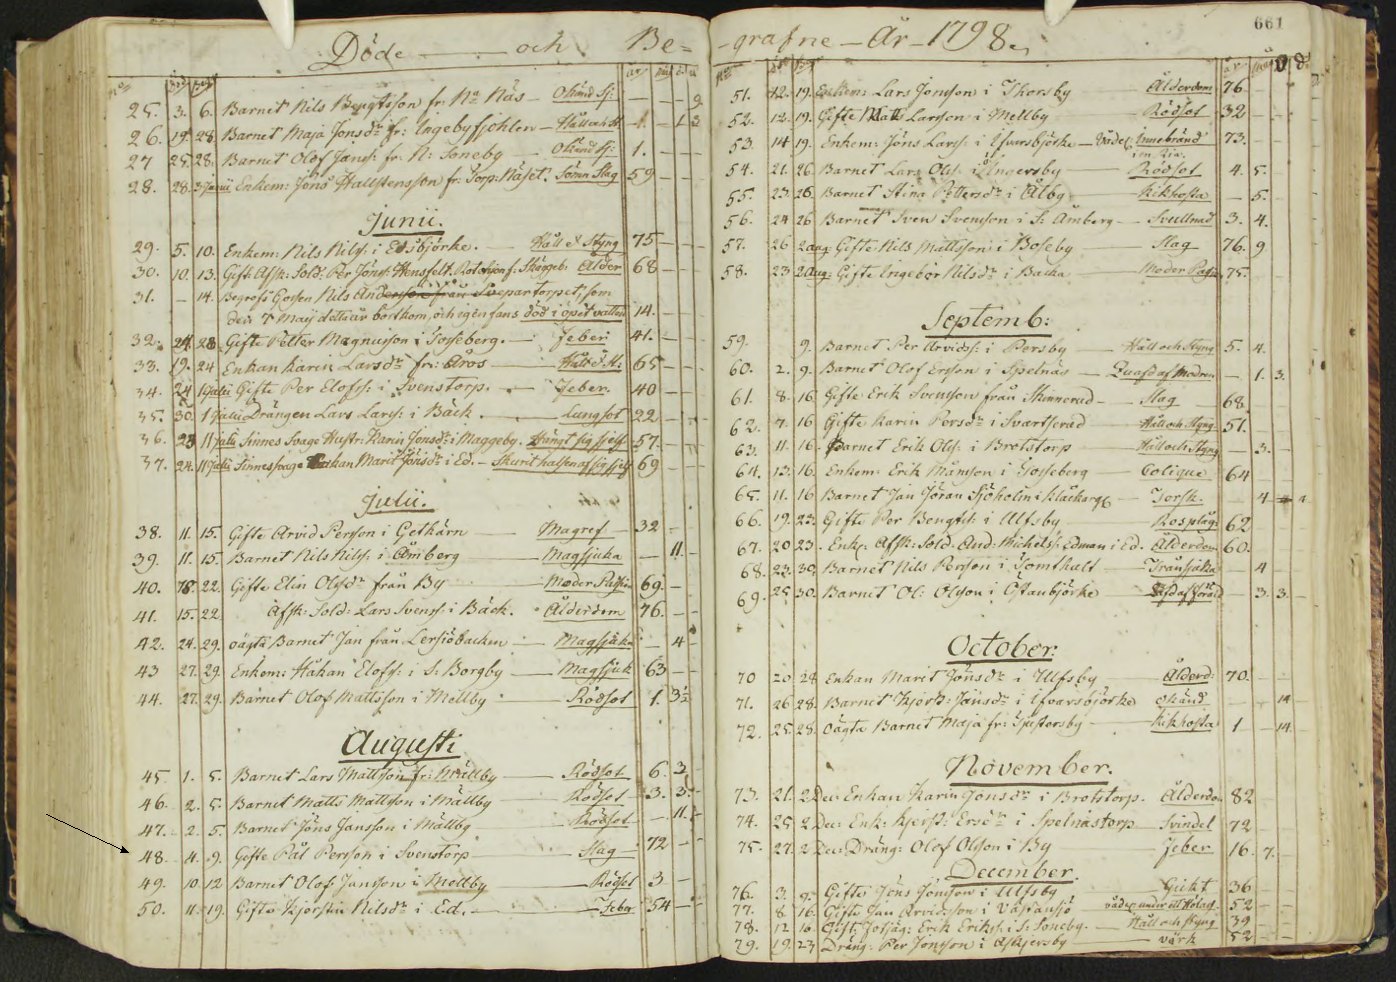 Döde och Be=
25. 3. 6. Barnet Nils Bengtsson fr: Na Näs - Okänd Sj: - - - 9.
26. 19. 28. Barnet Maja Jonsdr fr: Ingebyfjohlen - Håll och St - 1. - 1. 3
27 25. 28. Barnet Olof Janss: fr: N: Soneby - Okänd Sj: 1. - -
28. 28. 3 Junii Enkem: Jöns Hallstensson fr: Torp: Näset Sömn Slag 59 - -
Junii.
29. 5. 10. Enkem: Nils Nilss: i Edsbjörke. - Håll & Styng 75 - -
30. 10. 13. Gifte Afsk: Sold: Per Jönss: Hensfelt. Ålder 68 - -
31. - 14. Begrofs Gossen Nils Andersson från Svepartorpet, som
den 7 Maij detta år bortkom, och igen fans död i öpet vatten 14. - -
32. 24. 28. Gifte Petter Magnusson i Tosseberg. - Feber 41. - -
33. 19. 24 Enkan Karin Larsdr fr: Åros - Håll & St: 65 - -
34. 24. 1 Julii Gifte Per Elofss: i Svenstorp. - Feber. 40 - -
35. 30. 1 Julii Drängen Lars Larss: i Bäck. - Lungsot 22 - -
36. 23 11 Julii Sinnes Svage Hustr: Karin Jönsdr i Maggeby. Hängt sig sjelf 57. - -
37. 24. 11 Julii Sinnessvage Enkan Marit Jönsdr i Ed. - Skurit halsen af sig sjelf 69 - -
Julii.
38. 11. 15. Gifte Arvid Persson i Getkärn - Magref 32 -
39. 11. 15. Barnet Nils Nilss: i Amberg - Magsjuka - 11. -
40. 18. 22. Gifte Elin Olsdr från By - Moder Passion 69. -
41. 15. 22. Afsk: Sold: Lars Svenss: i Bäck. Ålderdom 76. - -
42. 24. 29. oägta Barnet Jan från Lersjöbacken - Magsjuka - 4 -
43 27. 29. Enkem: Håkan Elofss: i S: Borgby - Magsjuk 63 - -
44. 27. 29. Barnet Olof Mattsson i Mellby - Rödsot 1. 3½
Augusti
45. 1. 5. Barnet Lars Mattsson fr: Mällby - Rödsot 6. 3.
46. 2. 5. Barnet Matts Mattsson i Mällby - Rödsot 3. 3.
47. 2. 5. Barnet Jöns Jansson i Mällby - Rödsot - 11. -
48. 4. 9. Gifte Pål Persson i Svenstorp - Slag - 72 - -
49. 10. 12 Barnet Olof Jansson i Mellby - Rödsot 3 -
50. 11. 19. Gifta Kjerstin Nilsdr i Ed. - Feber 54 - -
-grafne - År - 1798.
661
51. 12. 19. Enkem: Lars Jonsson i Thorsby - Ålderdom 76.
52. 12. 19. Gifte Matts Larsson i Mellby - Rödsot 32
53. 14 19. Enkem: Jöns Larss: i Efvarsbjörke - Vådel. Innebränd 73.
54. 21. 26. Barnet Lars Ols: i Ingersby - Rödsot 4. 5.
55. 23. 26. Barnet Stina Pettersdr i Ålby - Kikhosta - 5.
56. 24 26 Barnet Sven Svensson i S: Amberg - Svullnad 3. 4.
57. 26 2 aug. Gifte Nils Mattsson i Boseby - Slag 76. 9
58. 23 2 Aug. Gifte Ingebor Nilsdr i Backa - Moder Passion 75.
Septemb:
59. 9. Barnet Per Arvidss: i Persby - Håll och Styng 5. 4.
60. 2. 9. Barnet Olof Ersson i Spelnäs - Quafd af Modren - 1. 3.
61. 8. 16. Gifte Erik Svensson från Skinnerud - Slag - 68.
62. 7. 16 Gifta Karin Persdr i Svartserud - Håll och Styng 51.
63. 11. 16. Barnet Erik Ols: i Brotstorp - Håll och Styng - 3. -
64. 13. 16. Enkem: Erik Månsson i Tosseberg - Colique 64
65. 11. 16 Barnet Jan Göran Sjöholm i - Torsk. - 4
66. 19. 23. Gifte Per Bengtss: i Ulfsby - Rosplåg: 62
67. 20 23. Enk: Afsk: Sold: And: Michelss: Edman i Ed. Ålderdom 60.
68. 23. 30. Barnet Nils Persson i Tomthalt - Tränsjuka - 4
69. 25 30. Barnet Ol: Olsson i Östanbjörke - 3. 3.
October:
70 20 28 Enkan Marit Jönsdr i Ulfsby - Ålderd: 70.
71. 26 28. Barnet Kjerst: Jansdr i Efvarsbjörke okänd - 14
72. 25 28. oägta Barnet Maja fr: Spestersby - Kikhosta 1 - 14.
November.
73. 21. 2 Dec: Enkan Karin Jonsdr i Brotstorp. Ålderdom 82
74. 25 2 Dec: Enk: Kjerst: Ersdr i Spelnästorp - Svindel 72
75. 27. 2 Dec: Dräng: Olof Olsson i By - Feber 16. 7.
December
76. 3. 9. Gifte Jöns Jönsson i Ulfsby - Gickt 36
77. 8 16. Gifte Jan Arvidsson i Västansjö - vådel. under ett Hölass. 52
78. 12 16 Gift: Erik Erikss: i S: Soneby. - Håll och Styng 39
79. 19. 23 Dräng: Per Jonsson i Askjersby - värk 52